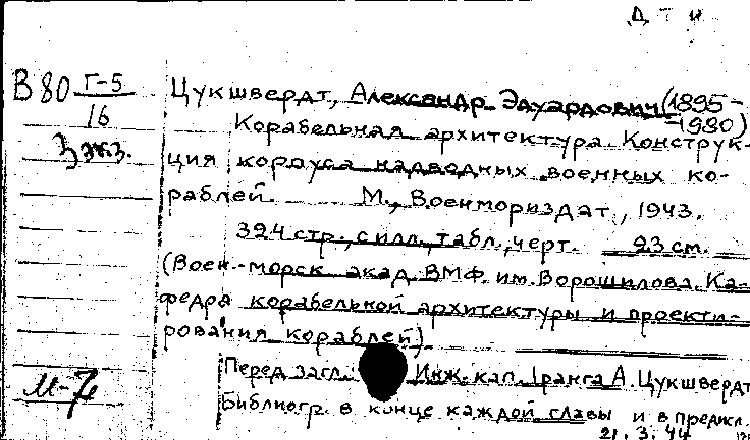 Д Т И
В 80 Г-5
16
3 экз.
Цукшвердт, Александр Эдуардович (1895-
-1980)
Корабельная архитектура. Конструк-
ция корпуса надводных военных ко-
раблей. М., Военмориздат, 1943.
324 стр., с илл., табл., черт. 23 см.
(Воен.-морск. акад. ВМФ им. Ворошилова. Ка-
федра корабельной архитектуры и проекти-
рования кораблей).
Перед загл.: Инж. кап. I ранга А. Цукшвердт
Библиогр. в конце каждой главы и в предисл.
21. 3. 44